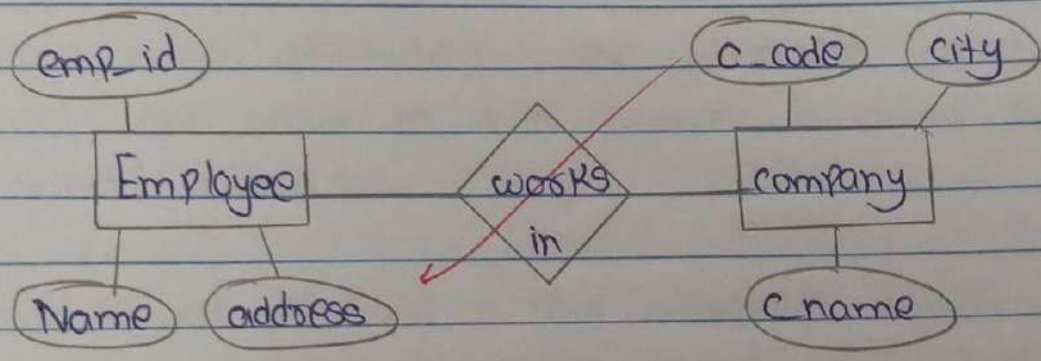 emp_id
c_code
city
Employee
works
in
company
Name
address
Cname